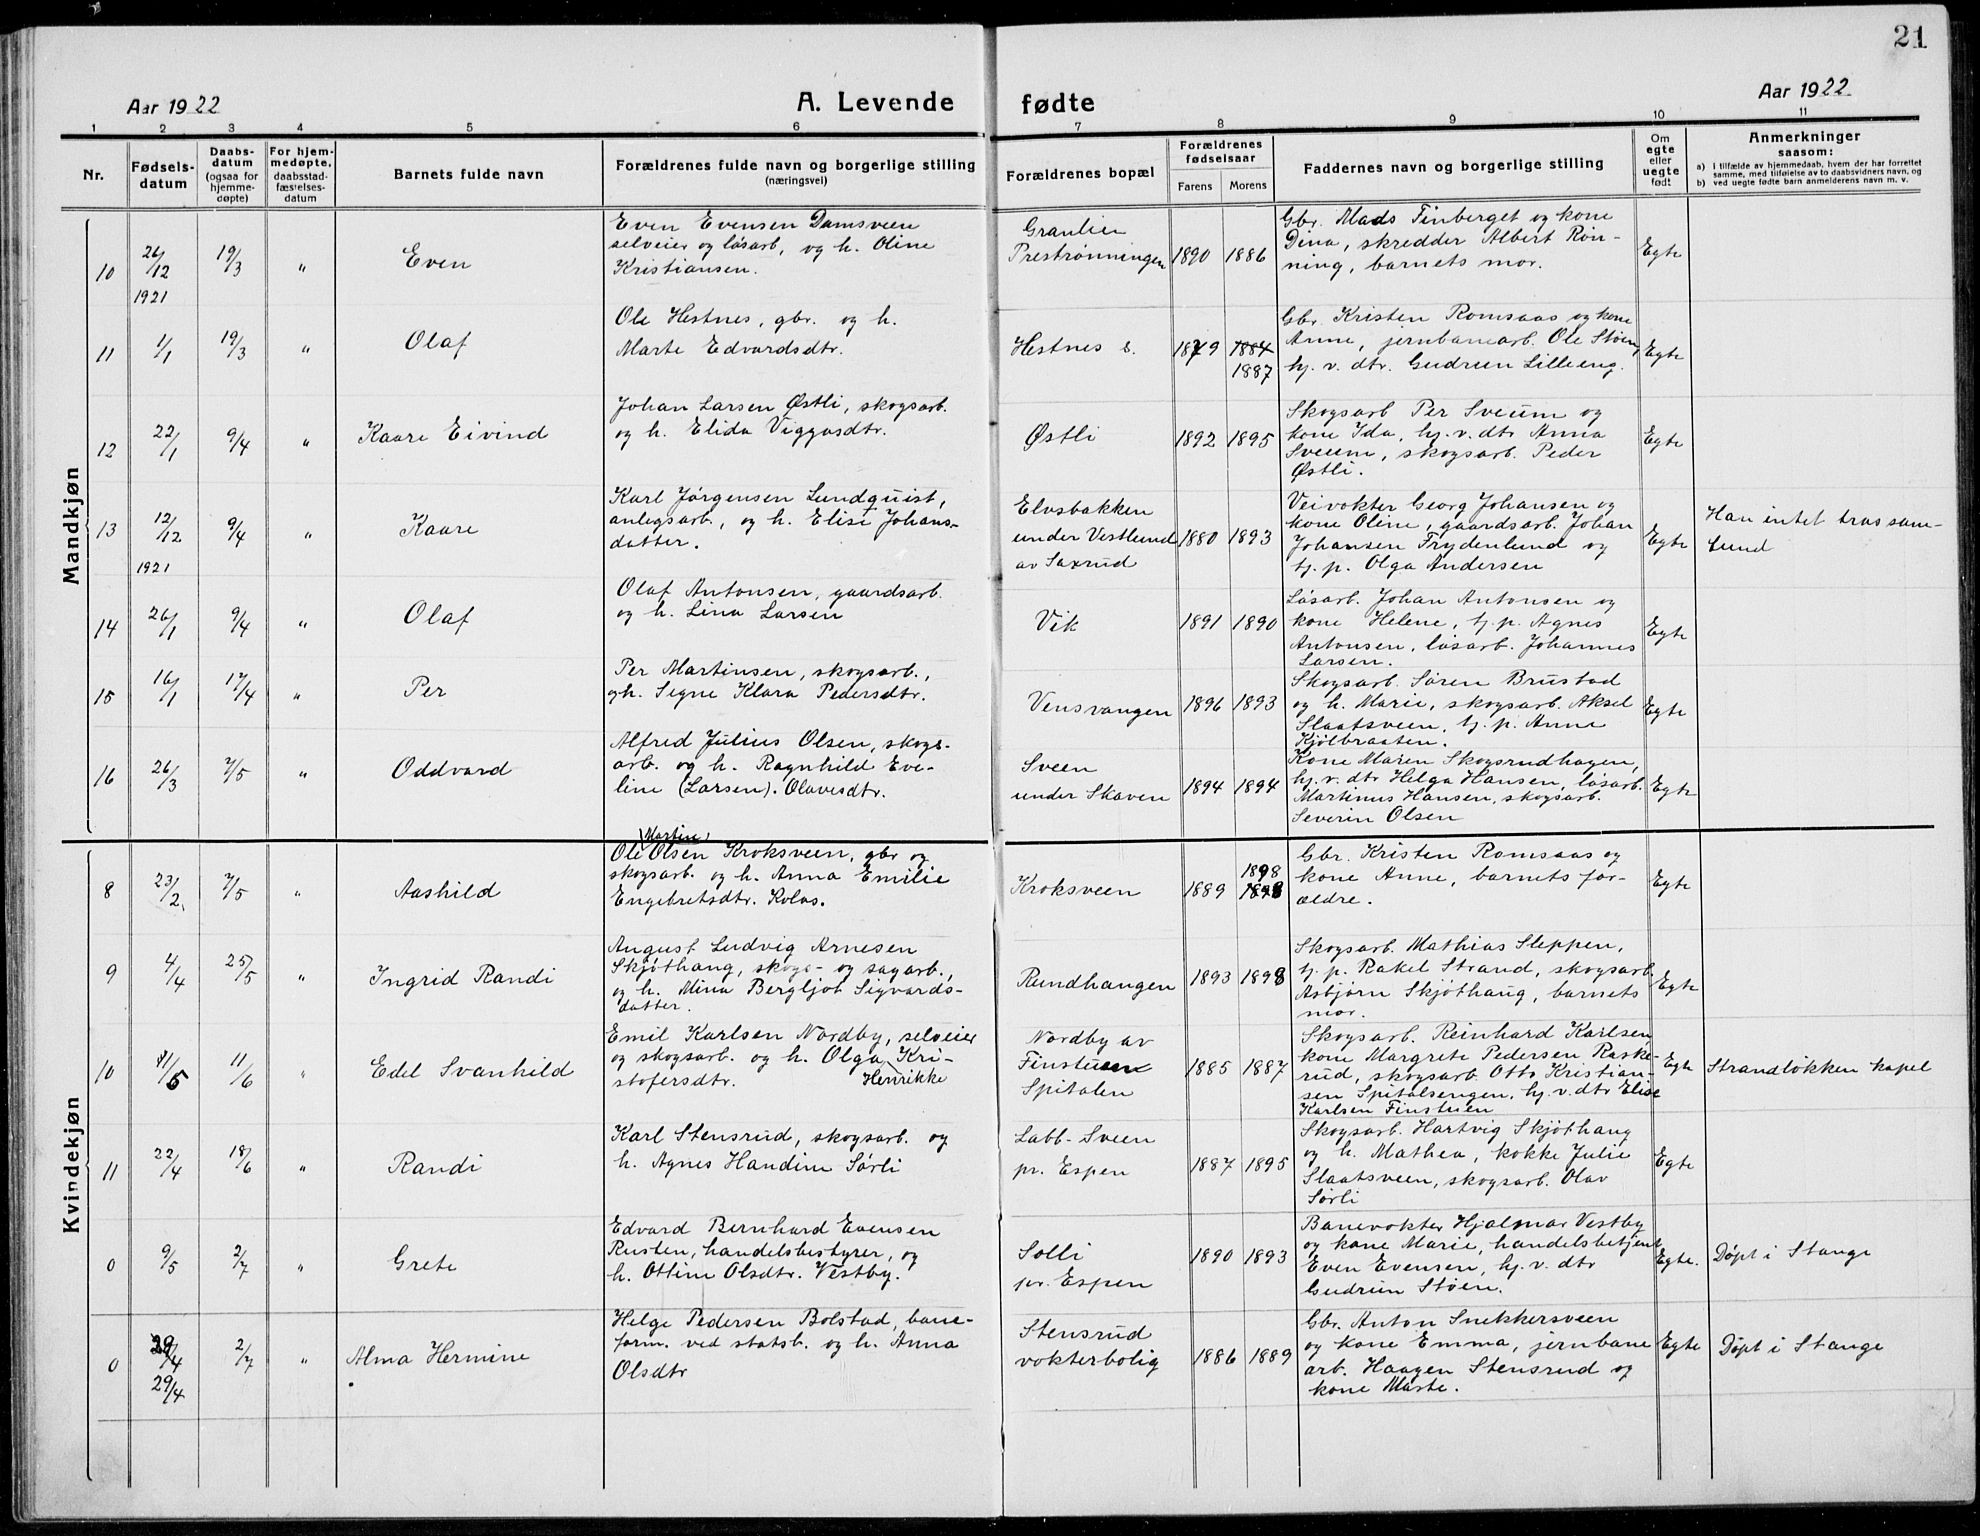 21
Aar 1922
A. Levende fødte
Aar 1922
1 2 3 4 5 6 7 8 9 10 11
Nr.
Fødsels-
datum
Daabs-
datum
(ogsaa for
hjemme-
døpte)
For hjem-
medøpte,
daabsstad-
fæstelses-
datum
Barnets fulde navn
Forældrenes fulde navn og borgerlige stilling
(næringsvei)
Forældrenes bopæl
Forældrenes
fødselsaar
Farens Morens
Faddernes navn og borgerlige stilling
Om
egte
eller
uegte
født
Anmerkninger
saasom:
a) i tilfælde av hjemmedaab, hvem der har forrettet
samme, med tilføielse av to daabsvidners navn, og
b) ved uegte fødte barn anmelderens navn m. v.
Mandkjøn
10 26/12 1921 19/3 " Even
Even Evensen Damsveen
selveier og løsarb, og h. Oline
Kristiansen.
Granlien
Prestrønningen
1890 1886
Gbr. Mads Finberget og kone
Dina, skredder Albert Røn-
ning, barnets mor.
Egte
11 1/1 19/3 " Olaf
Ole Hestnes, gbr. og h.
Marte Edvardsdtr.
Hestnes s.
1879 1884
1887
Gbr. Kristen Romsaas og kone
Anne, jernbanearb. Ole Støen,
hj. v. dtr. Gudrun Lilleeng.
Egte
12 22/1 9/4 " Kaare Eivind
Johan Larsen Østli, skogsarb.
og h. Elida Viggosdtr.
Østli
1892 1895
Skogsarb Per Sveum og
kone Ida, hj. v. dtr Anna
Sveum, skogsarb. Peder
Østli.
Egte
13 12/12 1921 9/4 " Kaare
Karl Jørgensen Lundquist,
anlegsarb., og h. Elise Johans-
datter.
Elvsbakken
under Vestlund
av Saxrud
1880 1893
Veivokter Georg Johansen og
kone Oline, gaardsarb. Johan
Johansen Frydenlund og
tj. p. Olga Andersen
Egte
Han intet tros sam-
fund
14 26/1 9/4 " Olaf
Olaf Antonsen, gaardsarb.
og h. Lina Larsen
Vik
1891 1890
Løsarb. Johan Antonsen og
kone Helene, tj. p. Agnes
Antonsen, løsarb. Johannes
Larsen.
Egte
15 16/1 17/4 " Per
Per Martinsen, skogsarb.,
og h. Signe Klara Pedersdtr.
Vensvangen
1896 1893
Skogsarb. Søren Brustad
og h. Marie, skogsarb. Aksel
Slaatsveen, tj. p. Anne
Kjølbraaten.
Egte
16 26/3 7/5 " Oddvard
Alfred Julius Olsen, skogs-
arb. og h. Ragnhild Eve-
line (Larsen). Olavesdtr.
Sveen
under Skaven
1894 1894
Kone Maren Skogsrudhagen,
hj. v. dtr Helga Hansen, løsarb.
Martinus Hansen, skogsarb.
Severin Olsen
Egte
Kvindekjøn
8 23/2 7/5 " Aashild
Martin
Ole Olsen Kroksveen, gbr og
skogsarb. og h. Anna Emilie
Engebretsdtr. Kolas.
Kroksveen
1889 1898
1898
Gbr. Kristen Romsaas og
kone Anne, barnets for-
ældre.
Egte
9 4/4 25/5 " Ingrid Randi
August Ludvig Arnesen
Skjøthaug, skogs- og sagarb.,
og h. Mina Bergljot Sigvards-
datter.
Rundhaugen
1893 1898
Skogsarb. Mathias Sleppen,
tj. p. Rakel Strand, skogsarb
Asbjørn Skjøthaug, barnets
mor.
Egte
10 11/5 11/6 " Edel Svanhild
Emil Karlsen Nordby, selveier
og skogsarb. og h. Olga Kri-
stofersdtr. Henrikke
Nordby av
Finstuen
Spitalen
1885 1887
Skogsarb. Reinhard Karlsen,
kone Margrete Pedersen Raske-
rud, skogsarb. Otto Kristian-
sen Spitalsengen, hj. v. dtr Elise
Karlsen Finstuen
Egte
Strandløkken kapel
11 22/4 18/6 " Randi
Karl Stensrud, skogsarb. og
h. Agnes Handine Sørli
Labb-Sveen
pr. Espen
1887 1895
Skogsarb. Hartvig Skjøthaug
og h. Mathea, kokke Julie
Slaatsveen, skogsarb. Olav
Sørli
Egte
0 9/5 2/7 " Grete
Edvard Bernhard Evensen
Rusten, handelsbestyrer, og
h. Ottine Olsdtr. Vestby.
Solli
pr. Espen
1890 1893
Banevokter Hjalmar Vestby
og kone Marie, handelsbetjent
Even Evensen, hj. v. dtr
Gudrun Støen.
Egte.
Døpt i Stange
0 29/4 2/7 " Alma Hermine
29/4
Helge Pedersen Bolstad, bane-
form. ved statsb. og h. Anna
Olsdtr
Stensrud
vokterbolig
1886 1889
Gbr. Anton Snekkersveen
og kone Emma, jernbane
arb. Haagen Stensrud og
kone Marte.
Egte
Døpt i Stange